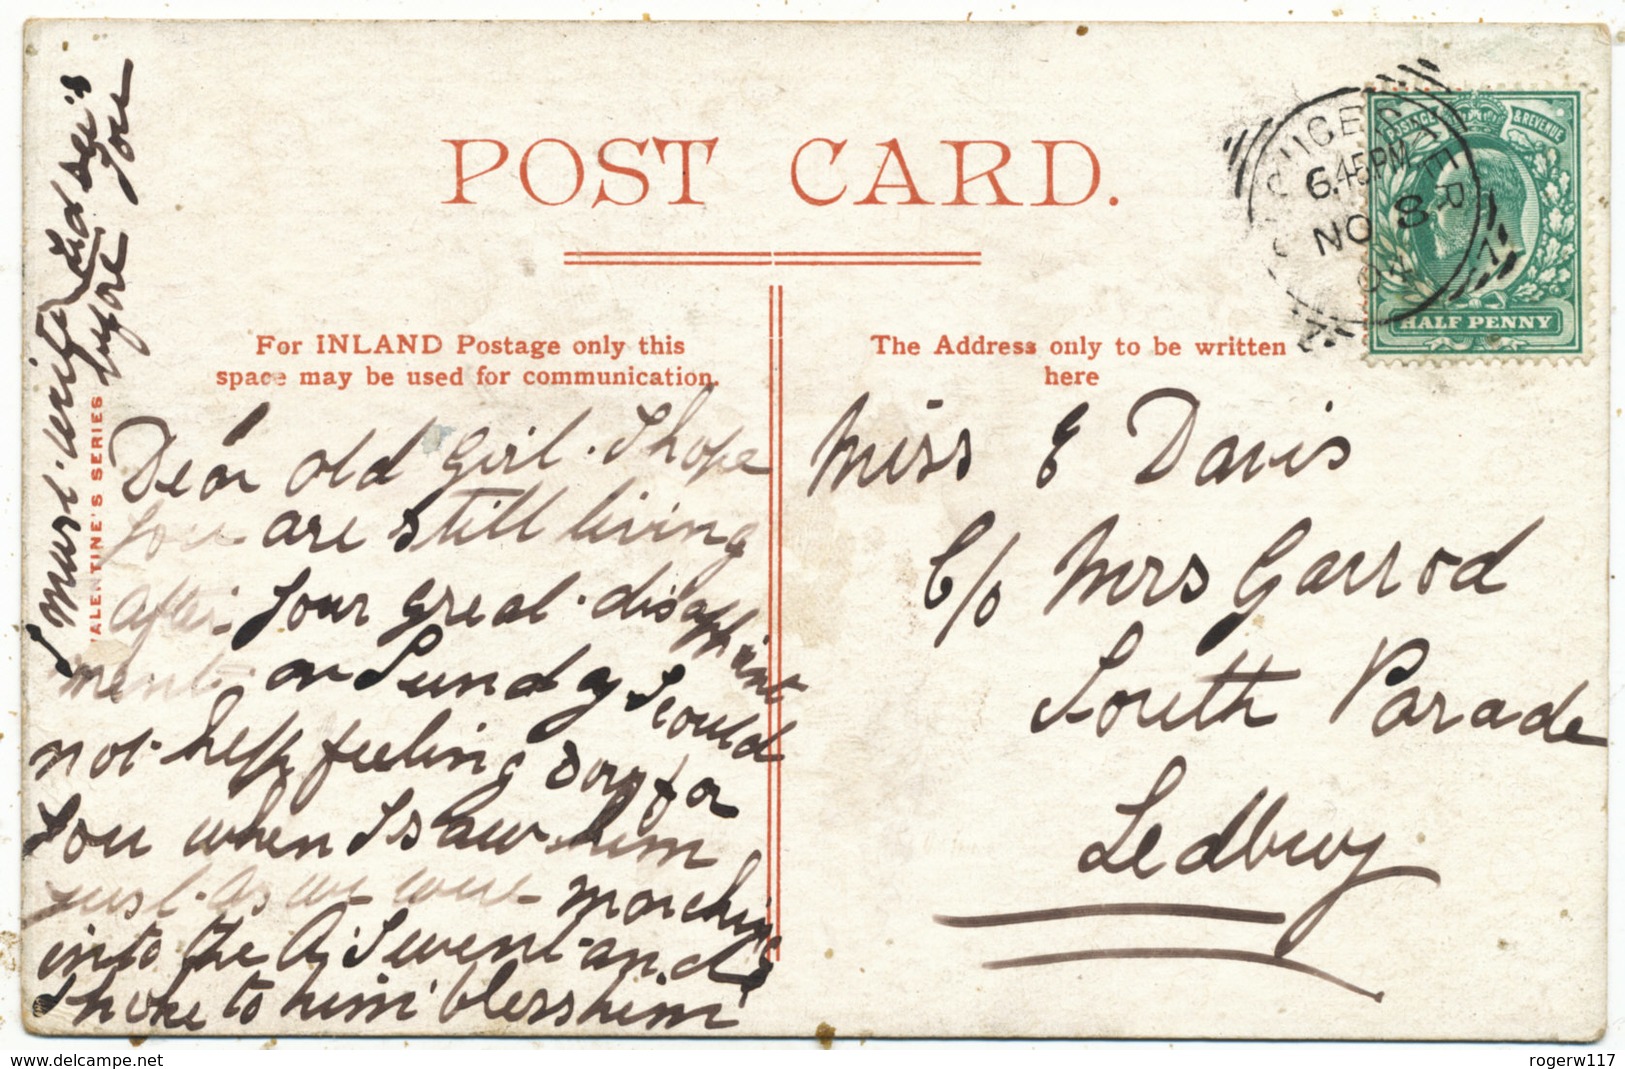 POST CARD.
For INLAND Postage only this
space may be used for communication.
The Address only to be written
here
POSTAGE & REVENUE
HALF PENNY
6.45PM
NO 8
04
VALENTINE'S SERIES
I must write
before You
Dear old Girl. I hope
you are still living
after your great disappoint
ment on Sunday I could
not help feeling sorry for
you when I saw him
just as we were marching
into the A. I went and
spoke to him bless him
Miss E Davis
C/o Mrs Garrod
South Parade
Ledbury
www.delcampe.net
rogerw117